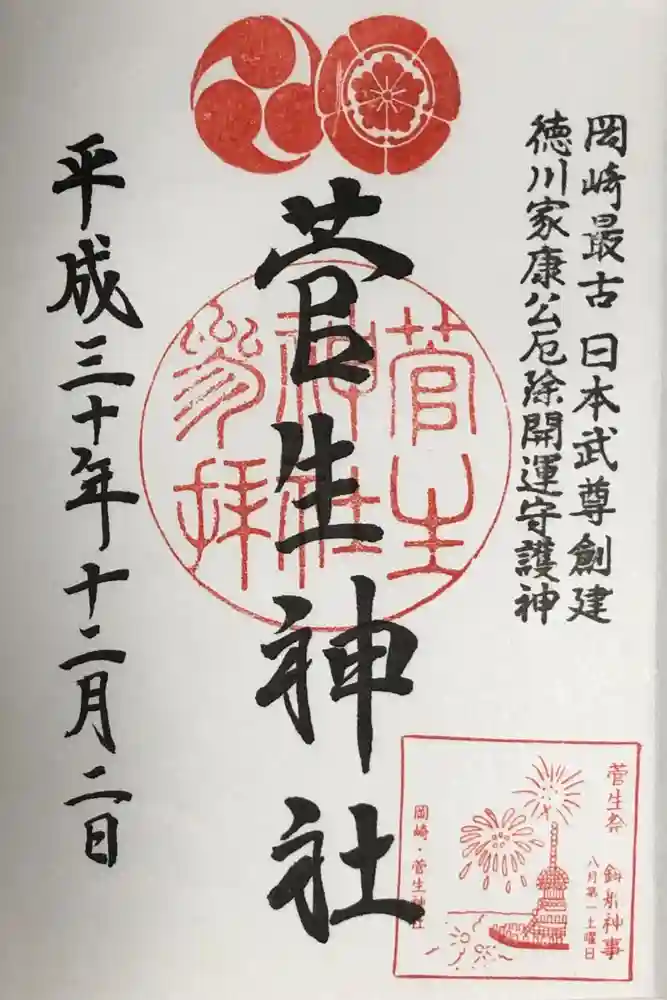 岡崎最古 日本武尊創建
徳川家康公厄除開運守護神
菅生神社
菅生
神社
参拝
平成三十年十二月二日
菅生祭
鉾船神事
八月第一土曜日
岡崎・菅生神社